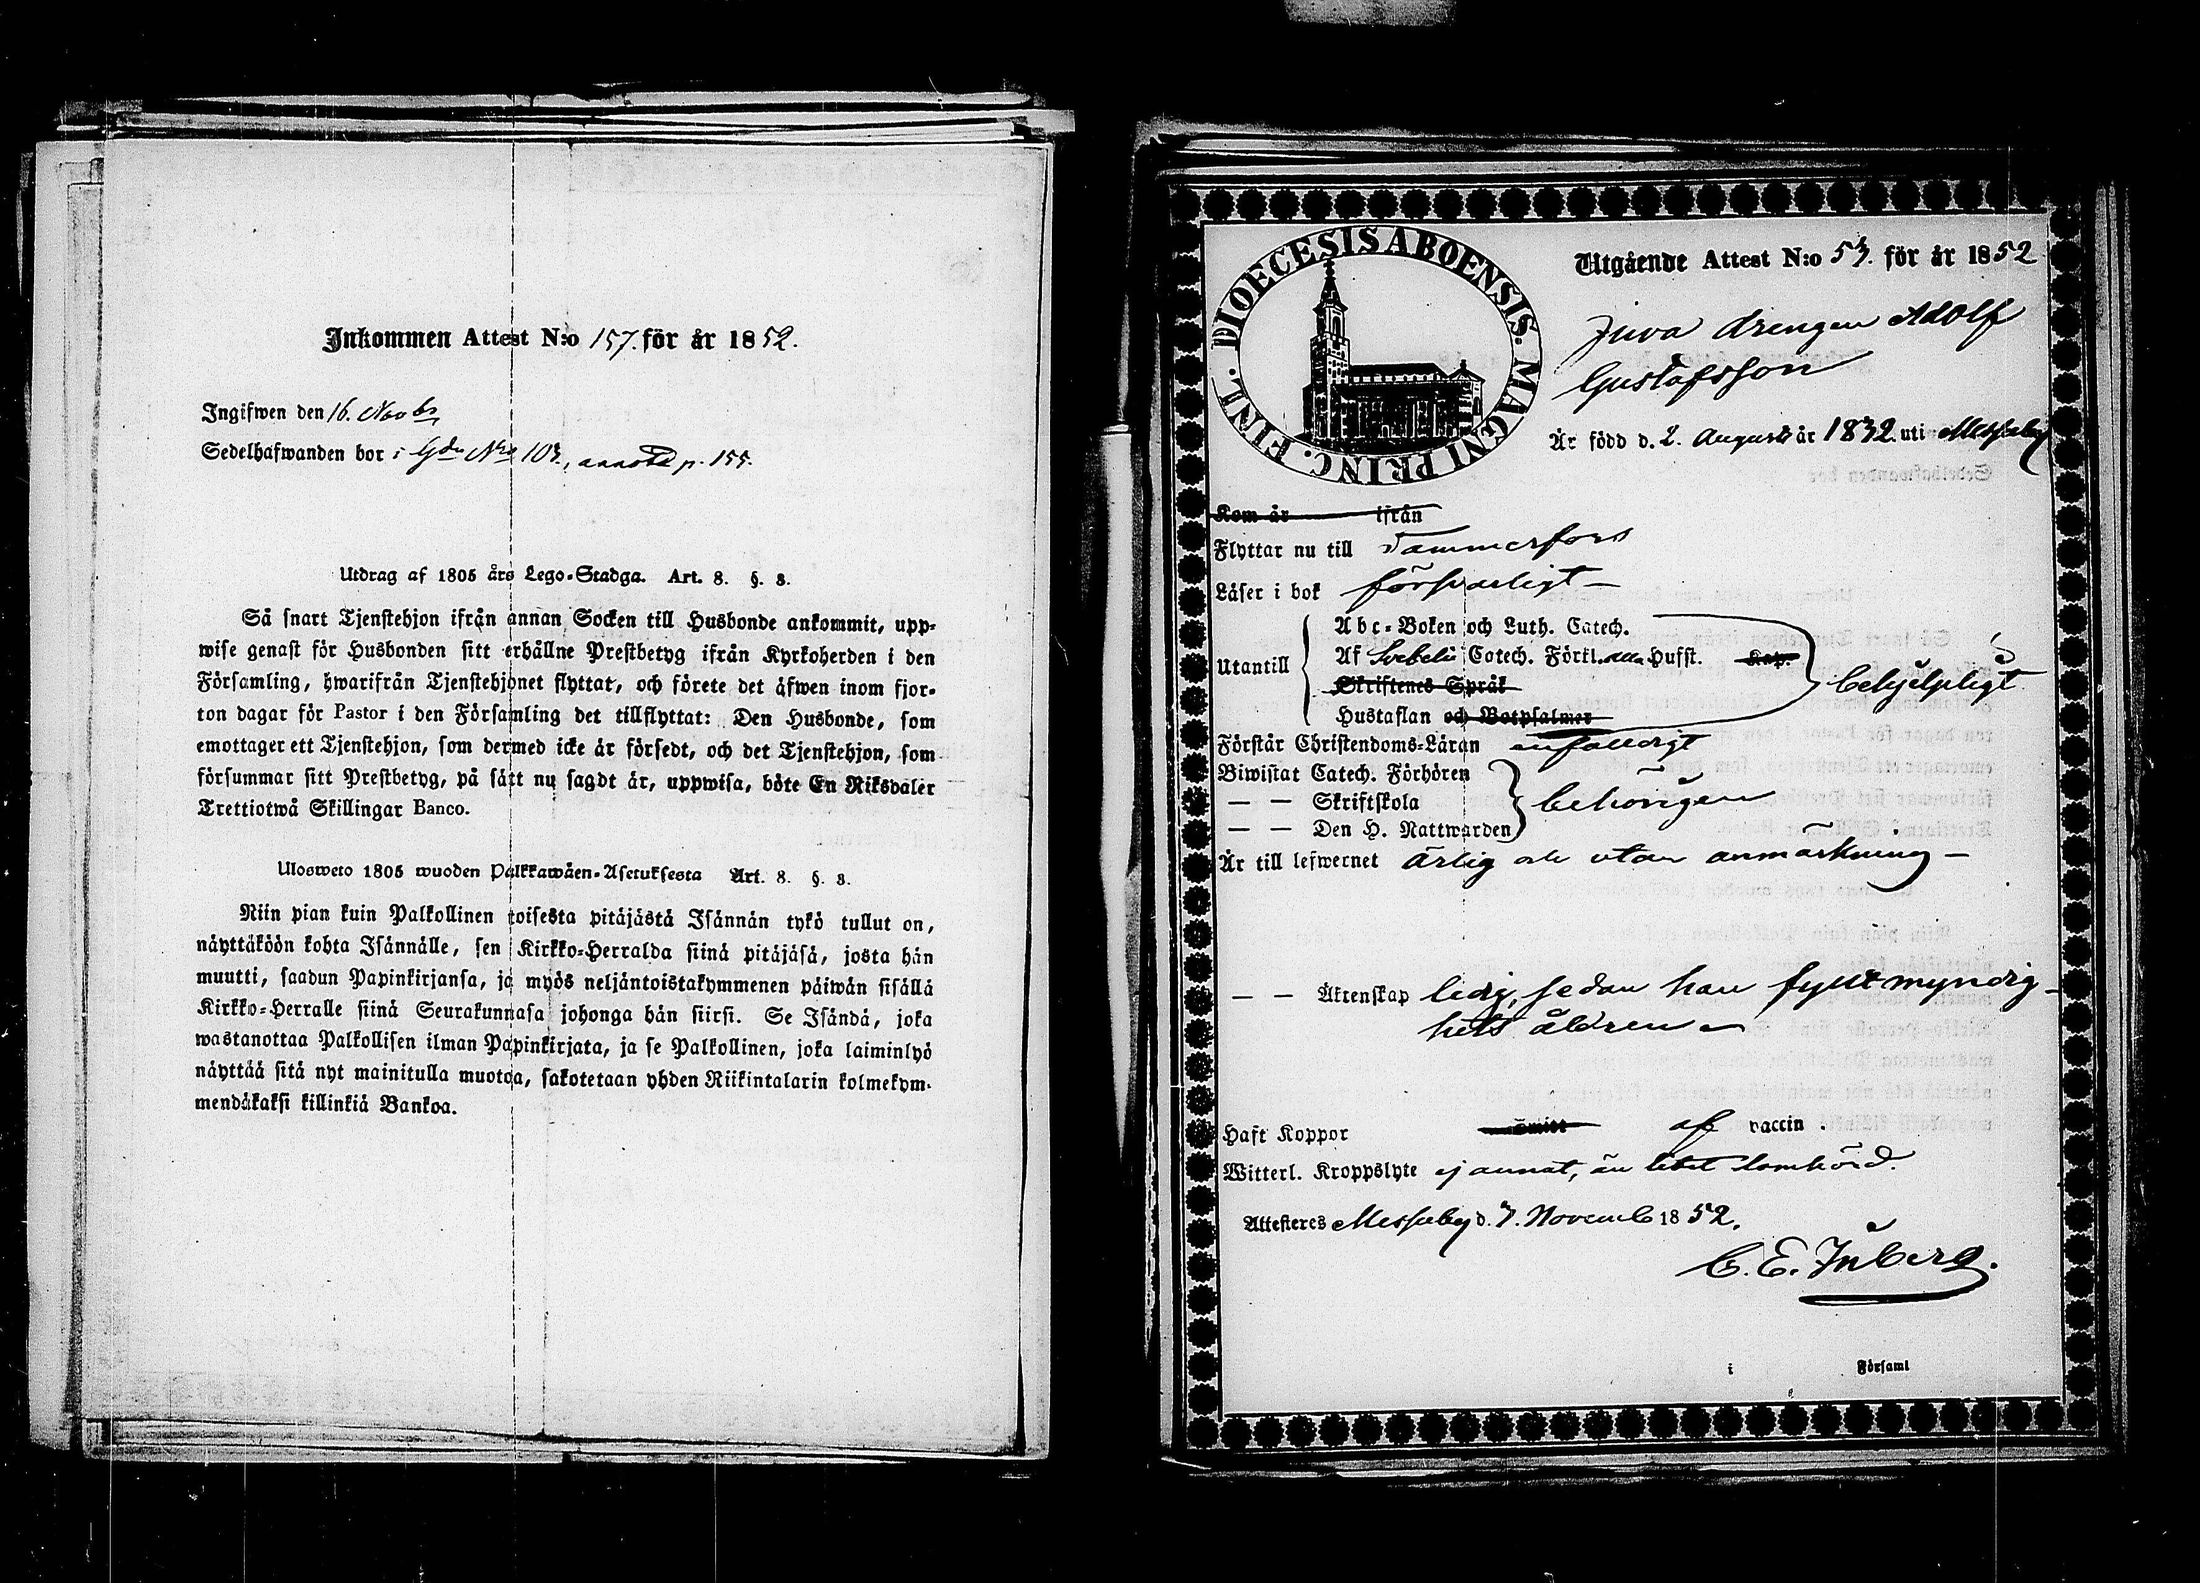 Inkommen Attest N:o 157. för år 1852.
Ingifwen den 16. Novbr
Sedelhafwanden bor i Gdn Nro 103, annoterad p. 155.
Utdrag af 1805 års Lego-Stadga. Art. 8. §. 8.
Så snart Tjenstehjon ifrån annan Socken till Husbonde ankommit, upp-
wise genast för Husbonden sitt erhållne Prestbetyg ifrån Kyrkoherden i den
Församling, hwarifrån Tjenstehjonet flyttat, och förete det äfwen inom fjor-
ton dagar för Pastor i den Församling det tillflyttat: Den Husbonde, som
emottager ett Tjenstehjon, som dermed icke är försedt, och det Tjenstehjon, som
försummar sitt Prestbetyg, på sätt nu sagdt är, uppwisa, böte En Riksdaler
Trettiotwå Skillingar Banco.
Ulosweto 1805 wuoden Palkkawäen-Asetuksesta Art. 8. §. 8.
Niin pian kuin Palkollinen toisesta pitäjästä Isännän tykö tullut on,
näyttäköön kohta Isännälle, sen Kirkko-Herralda siinä pitäjäsä, josta hän
muutti, saadun Papinkirjansa, ja myös neljäntoistakymmenen päiwän sisällä
Kirkko-Herralle siinä Seurakunnasa johonga hän siirsi. Se Isändä, joka
wastanottaa Palkollisen ilman Papinkirjata, ja se Palkollinen, joka laiminlyö
näyttää sitä nyt mainitulla muotoa, sakotetaan yhden Riikintalarin kolmekym-
mendäkaksi killinkiä Bankoa.
DIOECESIS ABOENSIS. MAGNI PRINC. FINL.
Utgående Attest N:o 53. för år 1852
Juva drengen Adolf
Gustafsson
Är född d. 2. Augusti år 1832 uti Messuby
Kom år ifrån
Flyttar nu till Tammerfors
Läser i bok försvarligt
Utantill
Abc-Boken och Luth. Catech.
Af Svebelii Catech. Förkl. alla Hufst. Kap.
Skriftenes Språk
Hustaflan och Botpsalmer
behjelpligt
Förstår Christendoms-Läran enfaldigt
Biwistat Catech. Förhören
— — Skriftskola
— — Den H. Nattwarden
behörigen
Är till lefwernet ärlig och utan anmärkning —
— — Äktenskap ledig, sedan han fyllt myndig-
hets åldren
Haft Koppor Smitt af vaccin.
Witterl. Kroppslyte ej annat, än litet lomhörd.
Attesteres Messuby d. 7. Novemb 1852.
C. E. Inberg.
i Församl